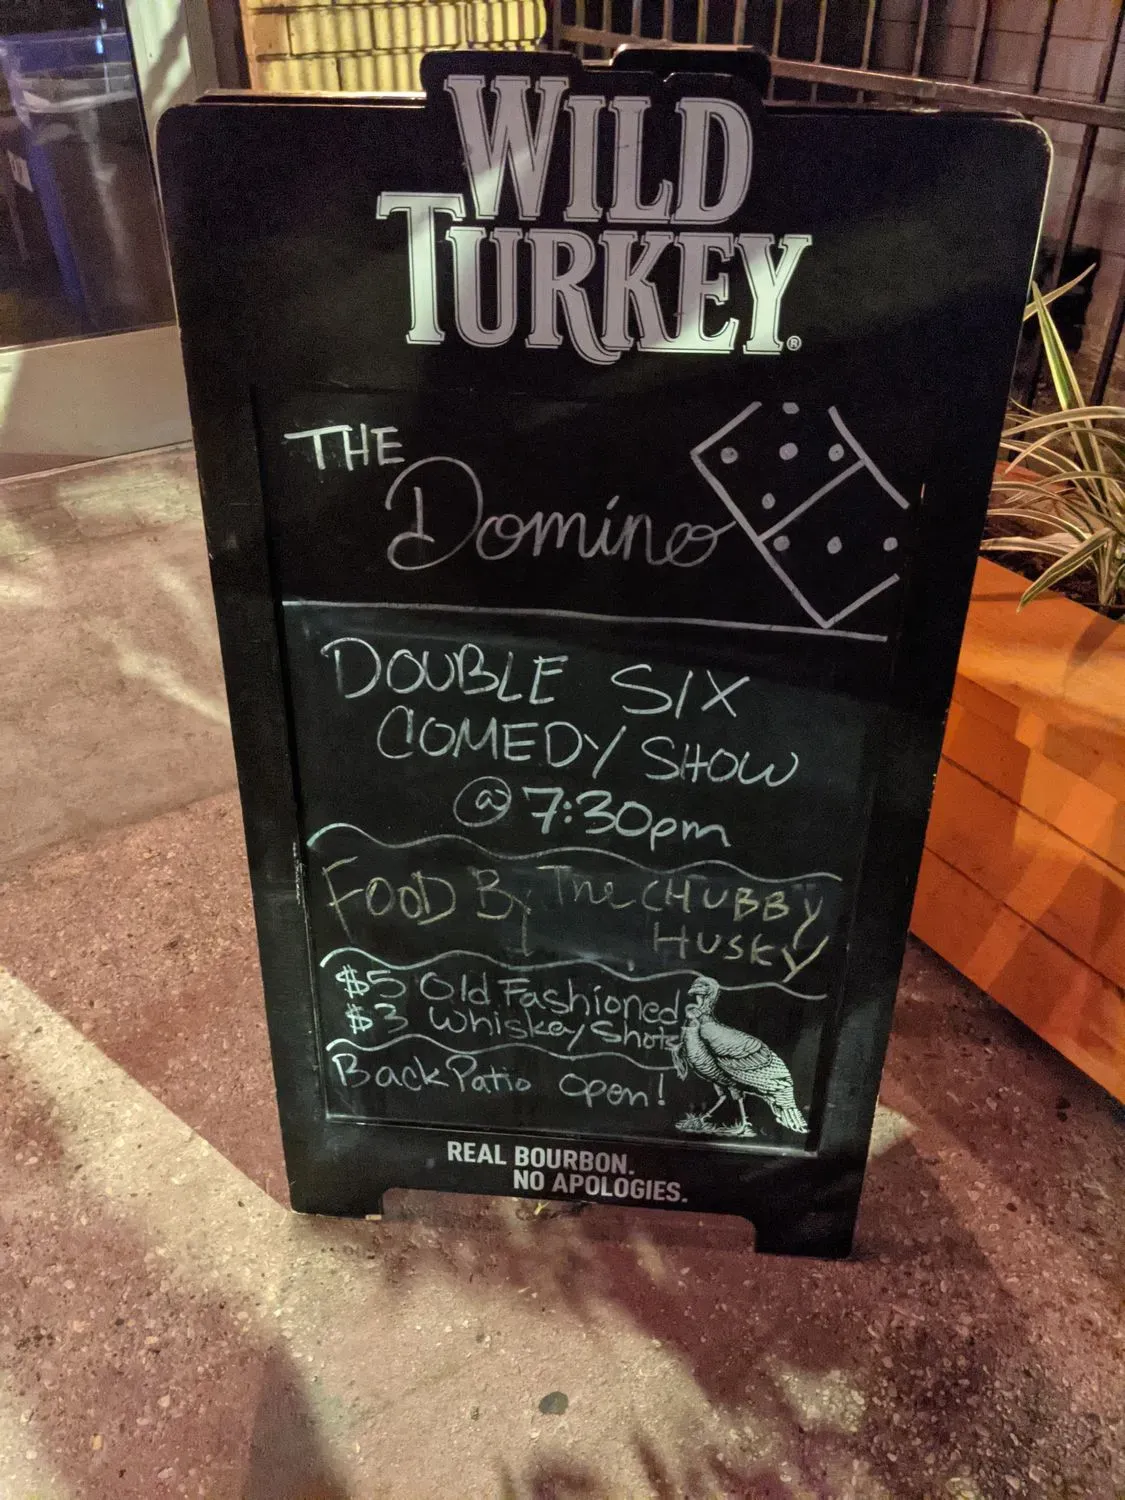 WILD
TURKEY®
THE
Domino
DOUBLE SIX
COMEDY SHOW
@ 7:30pm
FOOD By The CHUBBY
HUSKY
$5 Old Fashioned
$3 Whiskey Shots
Back Patio Open!
REAL BOURBON.
NO APOLOGIES.